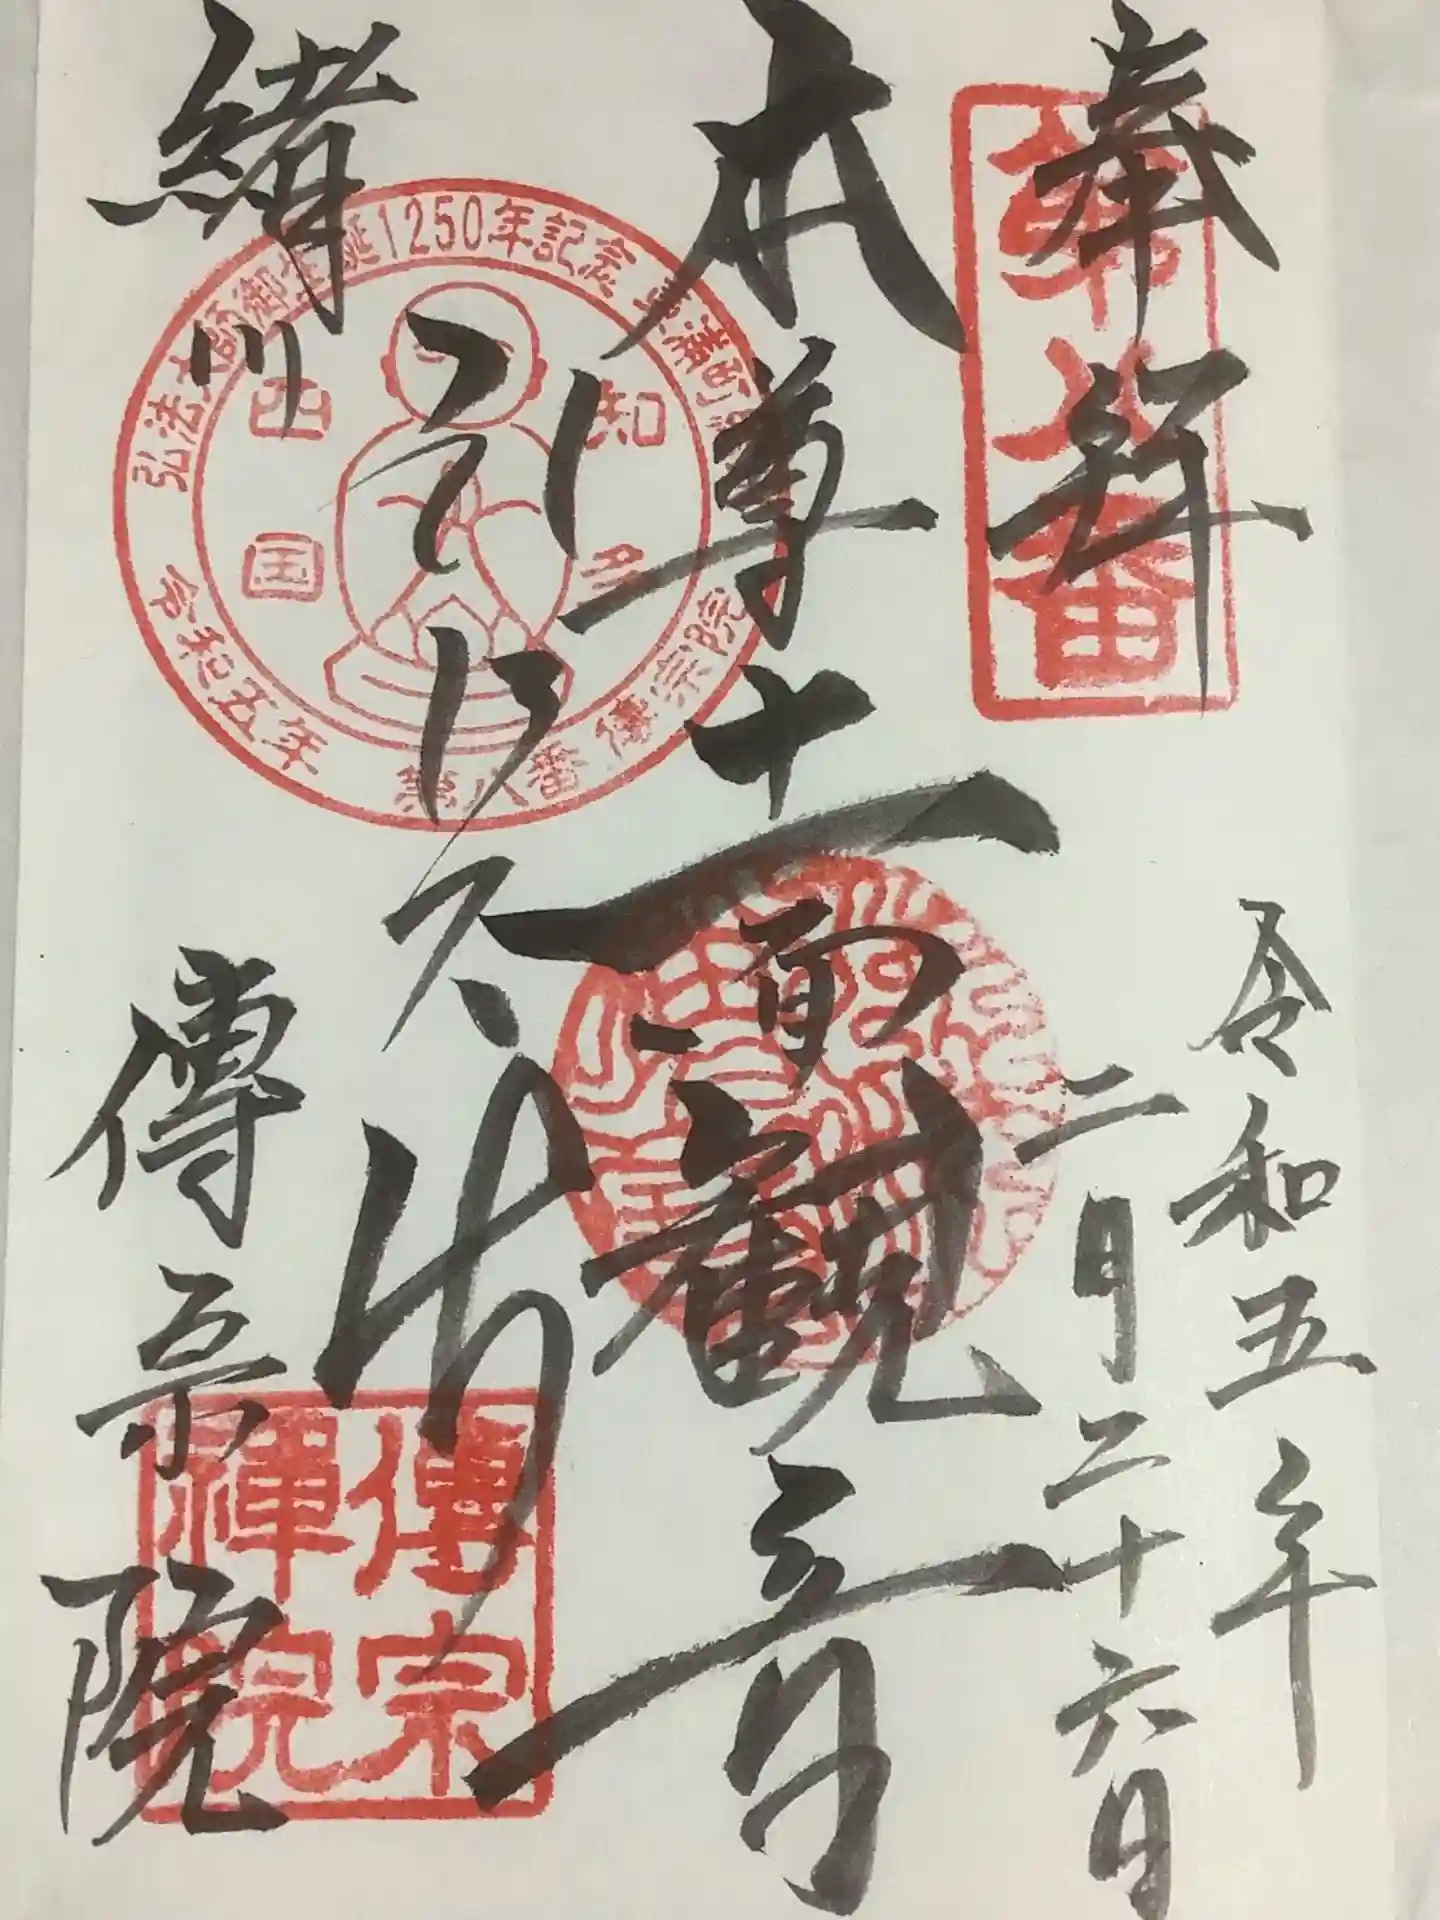 奉拝
第八番
令和五年
二月二十六日
本尊十一面観音
弘法大師
弘法大師御生誕1250年記念
知多
西国
令和五年 第八番 傳宗院
緒川
傳宗院
傳宗
禅院